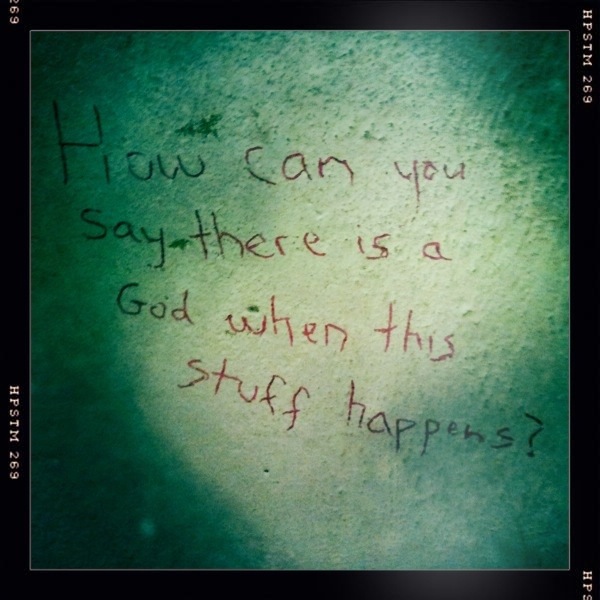 How can you
say there is a
God when this
stuff happens?
HPSTM 269
HPSTM 269
269
HPS